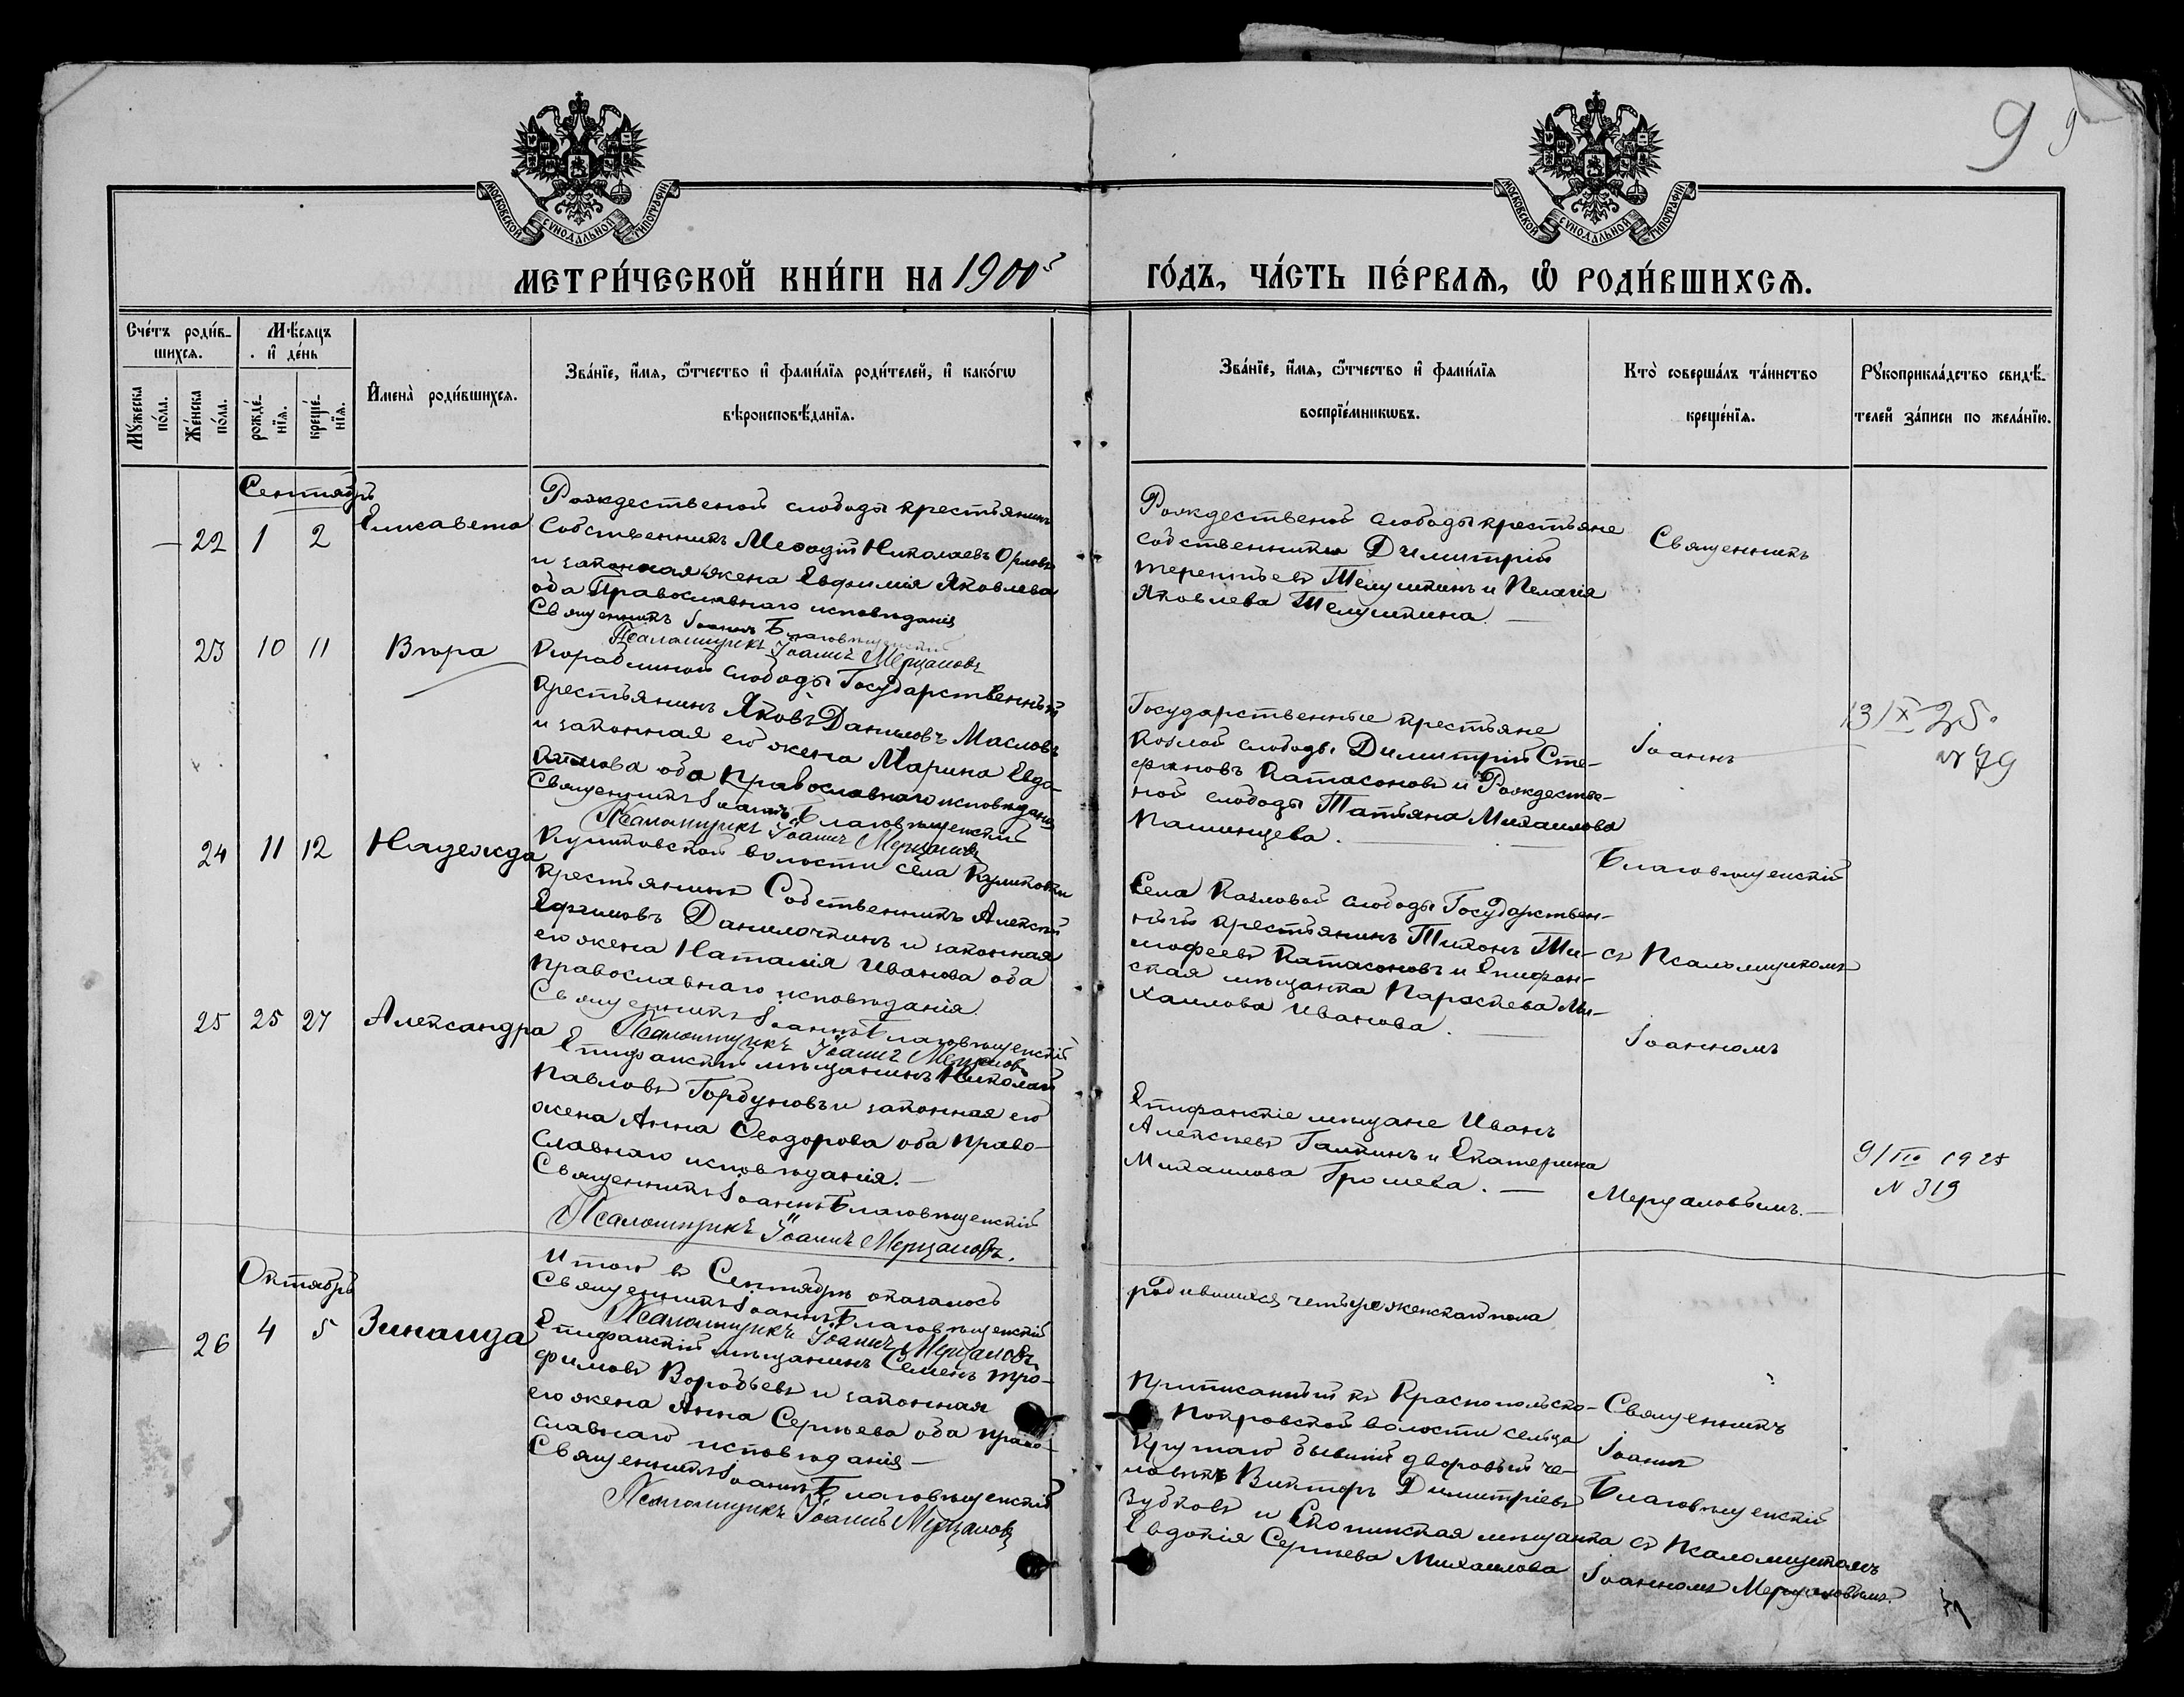 9 9
МОСКОВСКОЙ СѴНОДАЛЬНОЙ ТИПОГРАФІИ
МОСКОВСКОЙ СѴНОДАЛЬНОЙ ТИПОГРАФІИ
МЕТРИ́ЧЕСКОЙ КНИ́ГИ НА 1900й
ГО́ДЪ, ЧА́СТЬ ПЕ́РВАѦ, Ѽ РОДИ́ВШИХСѦ.
Сче́тъ роди́в-
шихсѧ.
Мѣ́сяцъ
и҆ де́нь
Мꙋ́жеска по́ла.
Же́нска по́ла.
рожде́-нїѧ.
креще́-нїѧ.
И҆мена̀ роди́вшихсѧ.
Зва́нїе, и҆́мѧ, ѻ҆́тчество и҆ фами́лїѧ роди́телей, и҆ како́гѡ
вѣроисповѣ́данїѧ.
Зва́нїе, и҆́мѧ, ѻ҆́тчество и҆ фами́лїѧ
воспрїе́мникѡвъ.
Кто̀ соверша́лъ та́инство
креще́нїѧ.
Рꙋкоприкла́дство свидѣ́-
телей за́писи по жела́нїю.
Сентябрь
— 22 1 2 Елисавета
Рождественой слободы крестьянинъ
Собственникъ Меѳодій Николаевъ Орловъ
и законная жена Евфимія Яковлева
оба Православнаго исповѣданія
Священникъ Іоаннъ Благовѣщенскій
Псаломщикъ Іоаннъ Мерцаловъ
Рождественой слободы крестьяне
собственники Димитрій
Терентьевъ Телушкинъ и Пелагія
Яковлева Телушкина —
Священникъ
23 10 11 Вѣра
Кораблиной слободы Государственный
крестьянинъ Яковъ Даниловъ Масловъ
и законная его жена Марина Евдо-
кимова оба Православнаго исповѣданія
Священникъ Іоаннъ Благовѣщенскій
Псаломщикъ Іоаннъ Мерцаловъ
Государственные крестьяне
Козлой слободы Димитрій Сте-
фановъ Катасоновъ и Рождестве-
ной слободы Татьяна Михаилова
Пашинцева. —
Іоаннъ
13/X 25.
№ 79
24 11 12 Надежда
Куликовской волости села Куликовки
крестьянинъ Собственникъ Алексѣй
Ефимовъ Данилочкинъ и законная
его жена Наталія Иванова оба
Православнаго исповѣданія.
Священникъ Іоаннъ Благовѣщенскій
Псаломщикъ Іоаннъ Мерцаловъ
Благовѣщенскій
Села Козловой слободы Государствен-
ный крестьянинъ Тихонъ Ти-
мофеевъ Катасоновъ и Епифан-
ская мѣщанка Параскева Ми-
хаилова Иванова. —
съ Псаломщикомъ
25 25 27 Александра
Епифанскій мѣщанинъ Николай
Павловъ Горбуновъ и законная его
жена Анна Ѳеодорова оба Право-
славнаго исповѣданія. —
Священникъ Іоаннъ Благовѣщенскій
Псаломщикъ Іоаннъ Мерцаловъ.
Іоанномъ
Епифанскіе мѣщане Иванъ
Алексѣевъ Галкинъ и Екатерина
Михаилова Грошева. —
Мерцаловымъ. —
9/III 1925
N 319
Итого въ Сентябрѣ оказалось
родившихся четыре женскаго пола
Священникъ Іоаннъ Благовѣщенскій
Псаломщикъ Іоаннъ Мерцаловъ
Октябрь
— 26 4 5 Зинаида
Епифанскій мѣщанинъ Семенъ Тро-
фимовъ Воробьевъ и законная
его жена Анна Сергѣева оба право-
славнаго исповѣданія —
Священникъ Іоаннъ Благовѣщенскій
Псаломщикъ Іоаннъ Мерцаловъ
Приписанный къ Краснопольско-
Покровской волости сельца
Крутаго бывшій дворовый че-
ловѣкъ Викторъ Димитріевъ
Зубковъ и Скопинская мѣщанка
Евдокія Сергѣева Михаилова
Священникъ
Іоаннъ
Благовѣщенскій
съ Псаломщикомъ
Іоанномъ Мерцаловымъ.